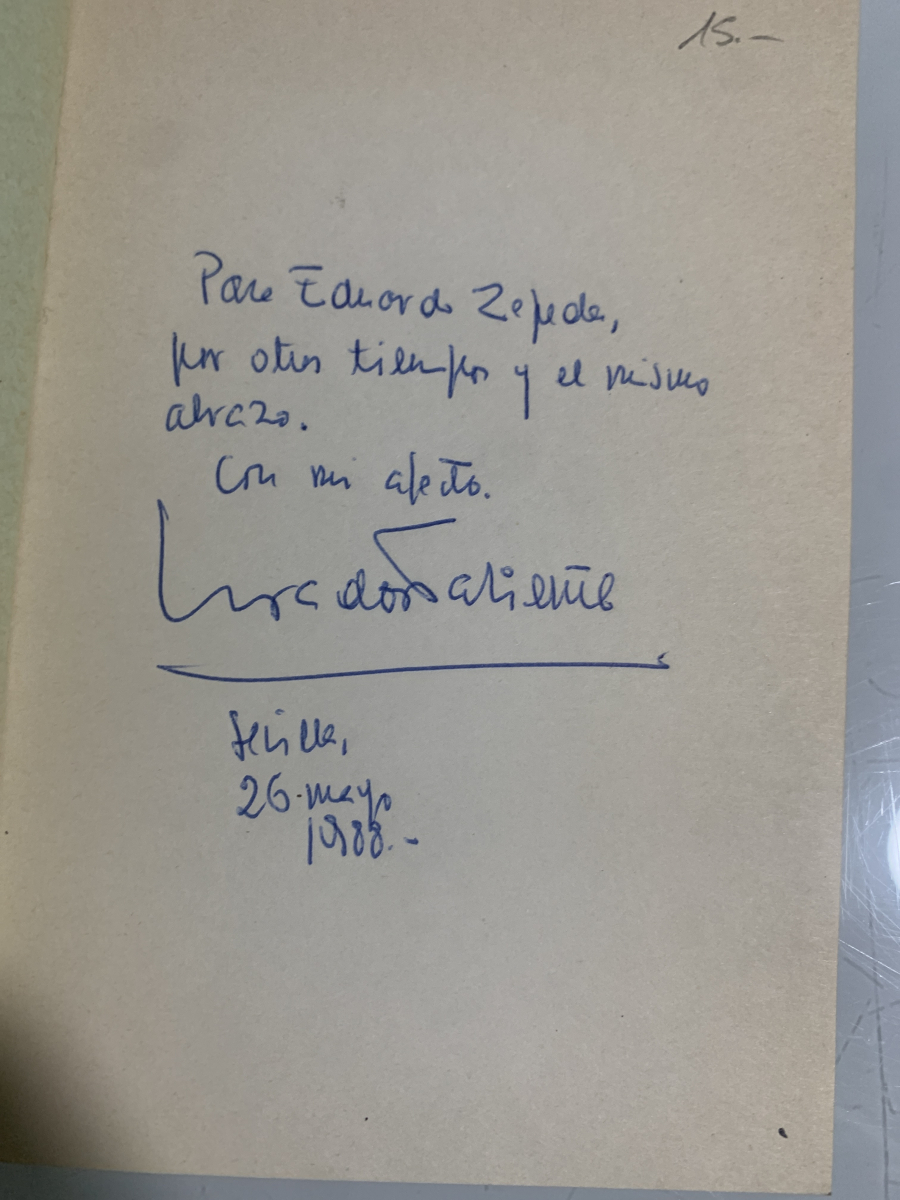 15.-
Para Eduardo Zepeda,
por otros tiempos y el mismo
abrazo.
Con mi afecto.
Sevilla,
26-mayo
1988.-